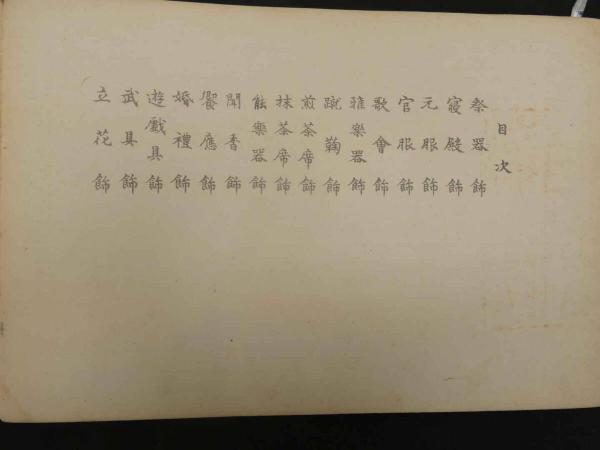 目次
祭器飾
寢殿飾
元服飾
官服飾
歌會飾
雅樂器飾
蹴鞠飾
煎茶席飾
抹茶席飾
能樂器飾
聞香飾
饗應飾
婚禮飾
遊戲具飾
武具飾
立花飾